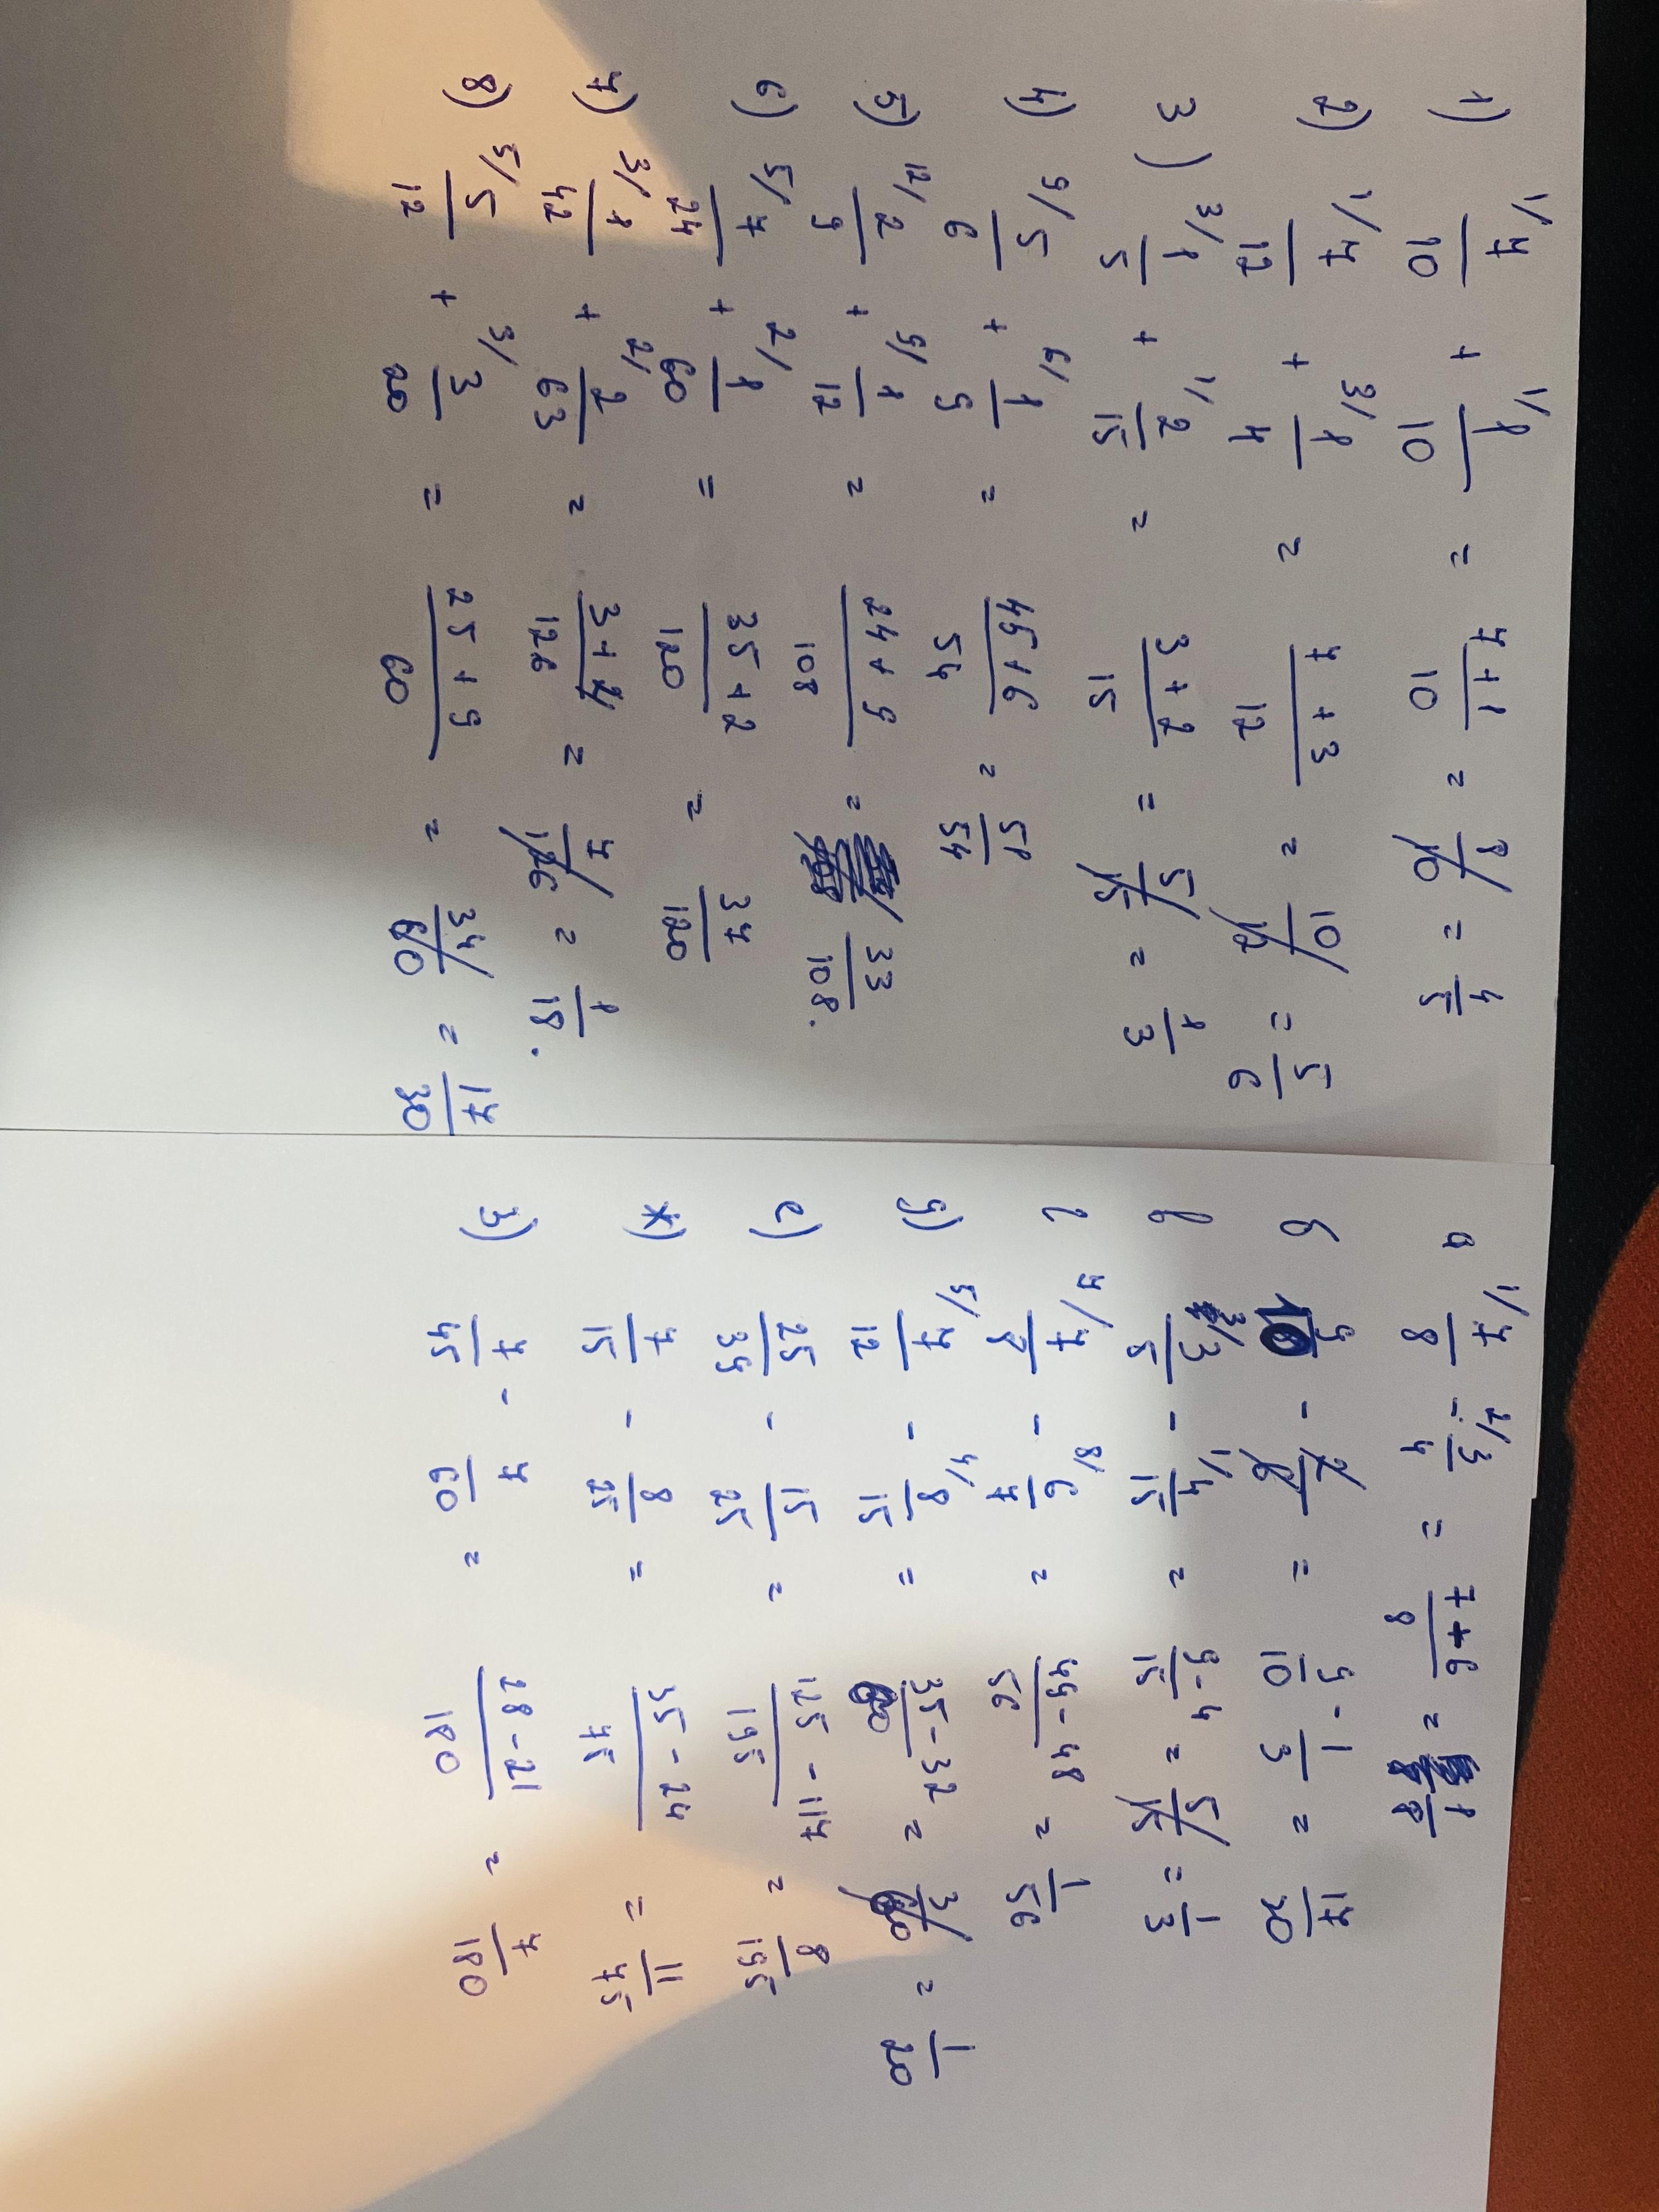 1) 1/ 7/10 + 1/ 1/10 = 7+1/10 = 8/10 = 4/5
2) 1/ 7/12 + 3/ 1/4 = 7+3/12 = 10/12 = 5/6
3) 3/ 1/5 + 1/ 2/15 = 3+2/15 = 5/15 = 1/3
4) 9/ 5/6 + 6/ 1/9 = 45+6/54 = 51/54
5) 12/ 2/9 + 9/ 1/12 = 24+9/108 = 33/108.
6) 5/ 7/24 + 2/ 1/60 = 35+2/120 = 37/120
7) 3/ 1/42 + 2/ 2/63 = 3+4/126 = 7/126 = 1/18.
8) 5/ 5/12 + 3/ 3/20 = 25+9/60 = 34/60 = 17/30
а 1/ 7/8 - 2/ 3/4 = 7+6/8 = 1/8
б 9/10 - 2/6 = 9/10 - 1/3 = 17/30
в 3/ 3/5 - 1/ 4/15 = 9-4/15 = 5/15 = 1/3
г 7/ 7/8 - 8/ 6/7 = 49-48/56 = 1/56
д) 5/ 7/12 - 4/ 8/15 = 35-32/60 = 3/60 = 1/20
е) 25/39 - 15/25 = 125-117/195 = 8/195
ж) 7/15 - 8/25 = 35-24/75 = 11/75
з) 7/45 - 7/60 = 28-21/180 = 7/180